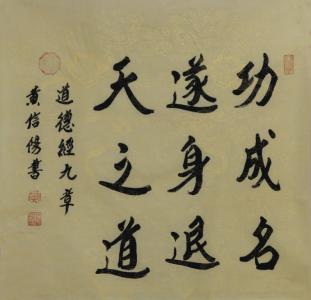 功成名
遂身退
天之道
道德經九章
黄信傷書